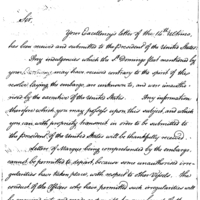 Sir,
Your Excellency's letter of the 14th Ultimo,
has been received and submitted to the President of the United States.
Any indulgences which the St. Domingo fleet mentioned by
you may have received contrary to the spirit of the
resolve laying the embargo, are unknown to, and were unauthor-
ised by the executive of the United States. Any information
therefore which you may possess upon this subject, and which
you can, with propriety transmit in order to be submitted to
the President of the United States will be thankfully received.
Letters of Marque being comprehended by the embargo,
cannot be permitted to depart, because some unauthorised irre-
gularities have taken place, with respect to other Vessels. The
conduct of the Officers who have permitted such irregularities will